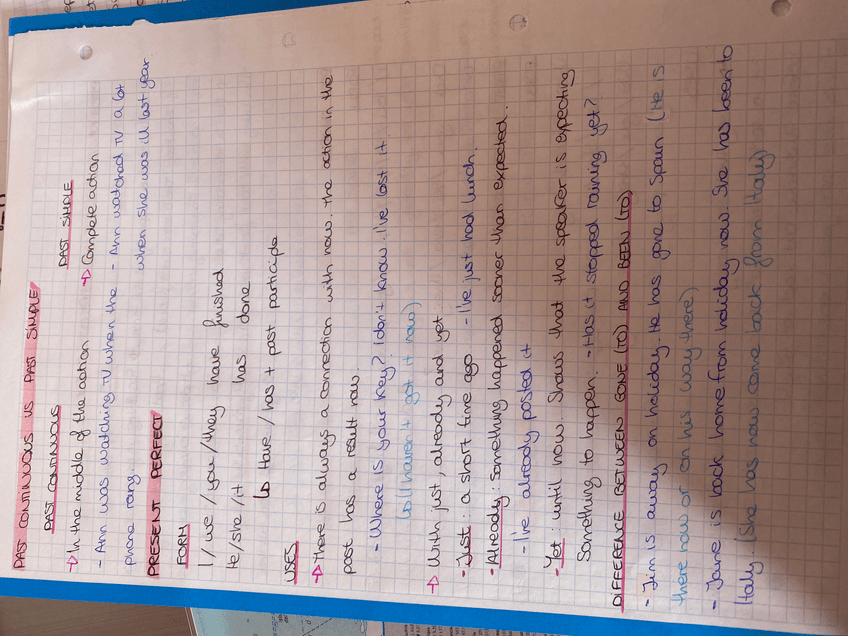 PAST CONTINUOUS VS PAST SIMPLE
PAST CONTINUOUS PAST SIMPLE
→ In the middle of the action → Complete action
- Ann was watching TV when the - Ann watched TV a lot
phone rang. when she was ill last year.
PRESENT PERFECT
FORM
I / we / you / they have finished
He / she / it has done
↳ Have / has + past participle
USES
→ There is always a connection with now. The action in the
past has a result now
- Where is your key? I don't know. I've lost it
(I haven't got it now)
→ With just, already and yet.
- Just: a short time ago - I've just had lunch.
- Already: something happened sooner than expected.
- I've already posted it
- Yet: until now. Shows that the speaker is expecting
something to happen. - Has it stopped raining yet?
DIFFERENCE BETWEEN GONE (TO) AND BEEN (TO)
- Jim is away on holiday. He has gone to Spain (He is
there now or on his way there)
- Jane is back home from holiday now. She has been to
Italy. (She has now come back from Italy)